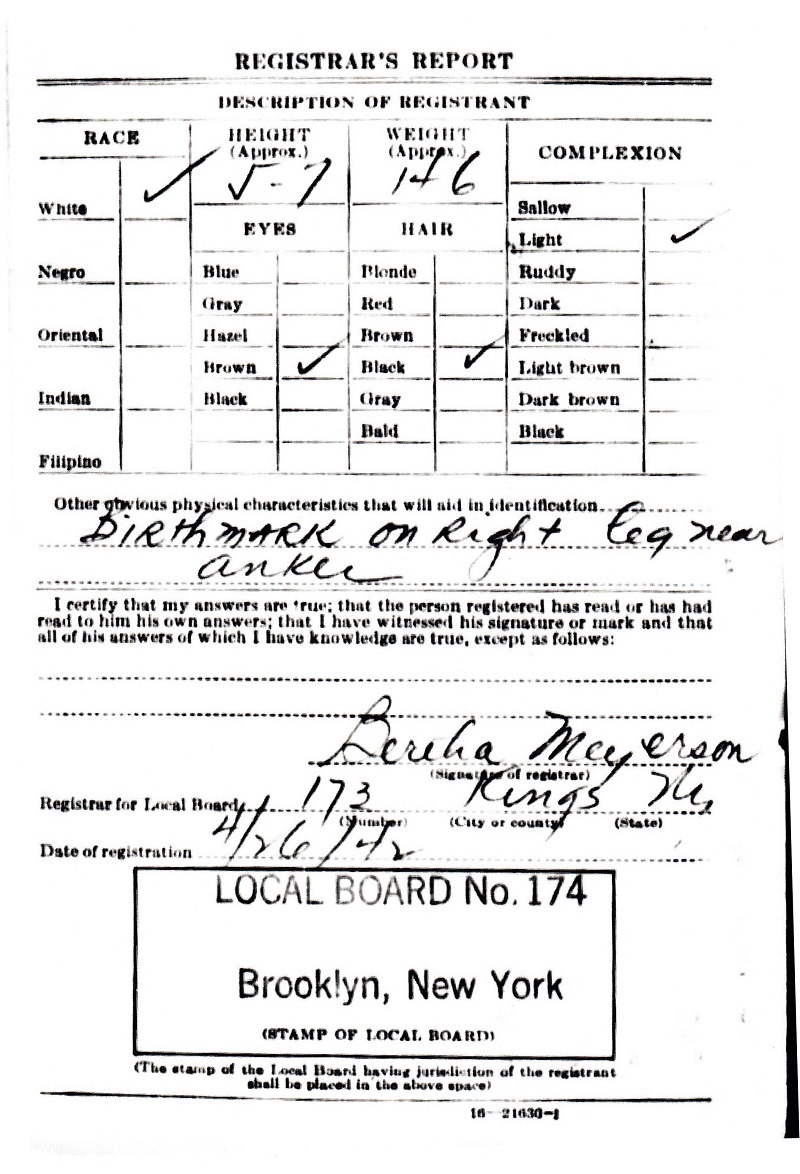 REGISTRAR'S REPORT
DESCRIPTION OF REGISTRANT
RACE
HEIGHT
(Approx.)
WEIGHT
(Approx.)
COMPLEXION
5-7
146
White ✓
EYES
HAIR
Sallow
Light ✓
Negro
Blue
Blonde
Ruddy
Gray
Red
Dark
Oriental
Hazel
Brown
Freckled
Brown ✓
Black ✓
Light brown
Indian
Black
Gray
Dark brown
Bald
Black
Filipino
Other obvious physical characteristics that will aid in identification
BIRTHMARK on Right leg near
anker
I certify that my answers are true; that the person registered has read or has had
read to him his own answers; that I have witnessed his signature or mark and that
all of his answers of which I have knowledge are true, except as follows:
Meyerson
(Signature of registrar)
Registrar for Local Board 173 Kings Ny
(Number) (City or county) (State)
Date of registration 4/26/42
LOCAL BOARD No. 174
Brooklyn, New York
(STAMP OF LOCAL BOARD)
(The stamp of the Local Board having jurisdiction of the registrant
shall be placed in the above space)
16—21630-1